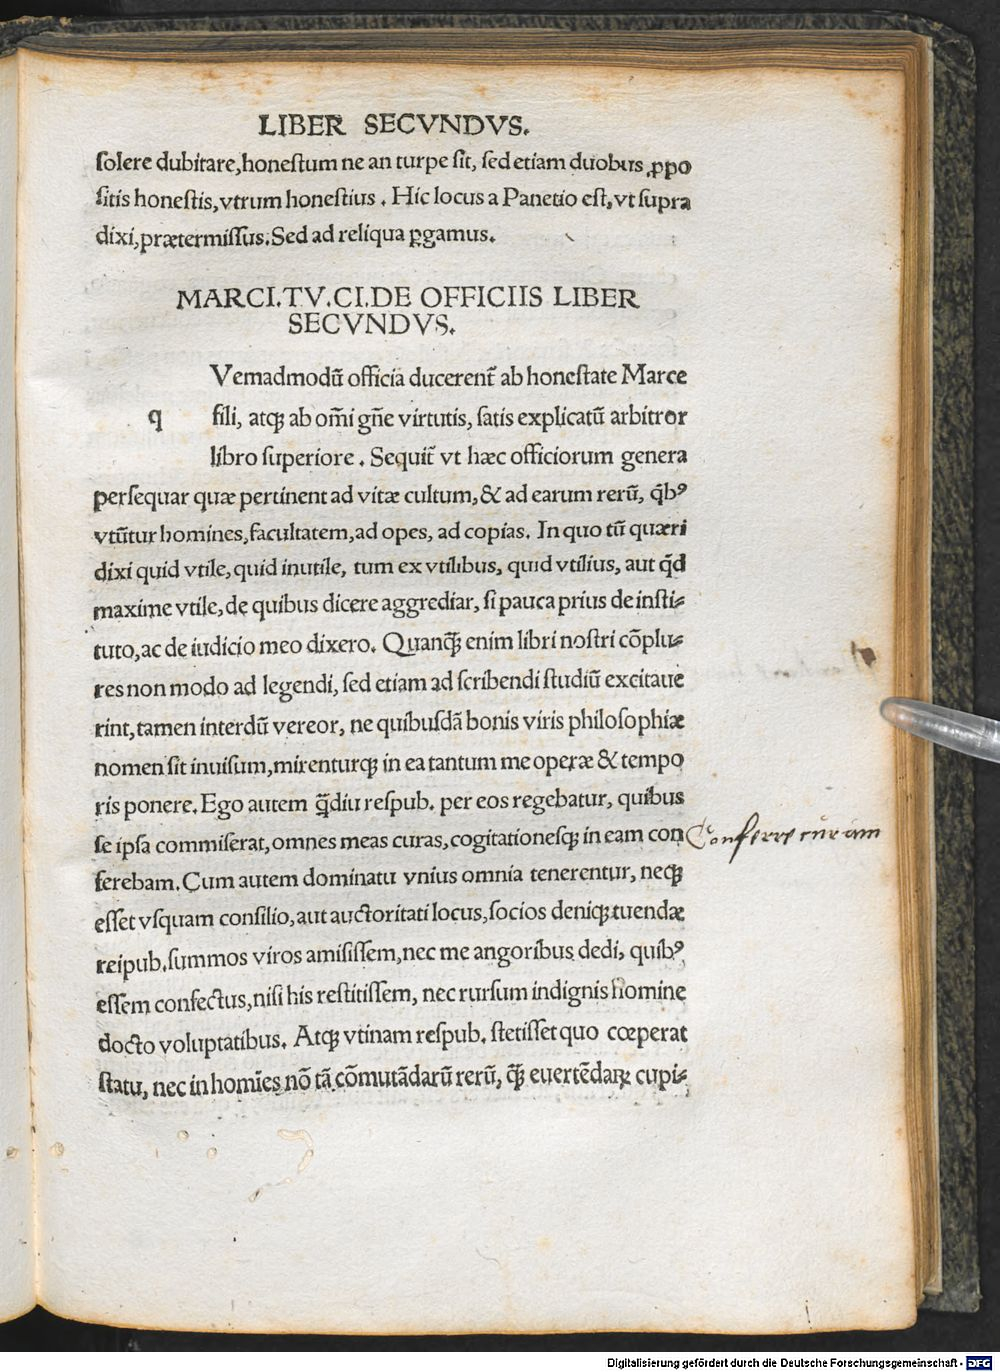 LIBER SECVNDVS.
solere dubitare,honestum ne an turpe sit, sed etiam duobus ꝓpo
sitis honestis,vtrum honestius . Hic locus a Panetio est,vt supra
dixi,prætermissus.Sed ad reliqua ꝑgamus.
MARCI.TV.CI.DE OFFICIIS LIBER
SECVNDVS.
Vemadmodū officia ducerent̄ ab honestate Marce
q fili, atqꝫ ab om̄i gn̄e virtutis, satis explicatū arbitror
libro superiore . Sequit̄ vt hæc officiorum genera
persequar quæ pertinent ad vitæ cultum,& ad earum rerū, q̄bꝰ
vtūtur homines,facultatem,ad opes, ad copias. In quo tū quæri
dixi quid vtile,quid inutile, tum ex vtilibus, quid vtilius, aut q̄d
maxime vtile,de quibus dicere aggrediar, si pauca prius de insti-
tuto,ac de iudicio meo dixero. Quanqꝫ̄ enim libri nostri cōplu-
res non modo ad legendi, sed etiam ad scribendi studiū excitaue
rint,tamen interdū vereor, ne quibusdā bonis viris philosophiæ
nomen sit inuisum,mirenturqꝫ in ea tantum me operæ & tempo
ris ponere. Ego autem q̄diu respub. per eos regebatur, quibus
se ipsa commiserat,omnes meas curas,cogitationesqꝫ in eam con
Conferre curam
ferebam. Cum autem dominatu vnius omnia tenerentur, neqꝫ
esset vsquam consilio,aut auctoritati locus,socios deniqꝫ tuendæ
reipub.summos viros amisissem,nec me angoribus dedi, quibꝰ
essem confectus,nisi his restitissem, nec rursum indignis homine
docto voluptatibus. Atqꝫ vtinam respub. stetisset quo cœperat
statu, nec in homīes nō tā cōmutādarū rerū, qꝫ̄ euertēdaꝝ cupi-
Digitalisierung gefördert durch die Deutsche Forschungsgemeinschaft - DFG